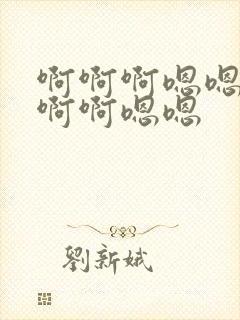 啊啊啊嗯嗯
啊啊嗯嗯
劉新娥